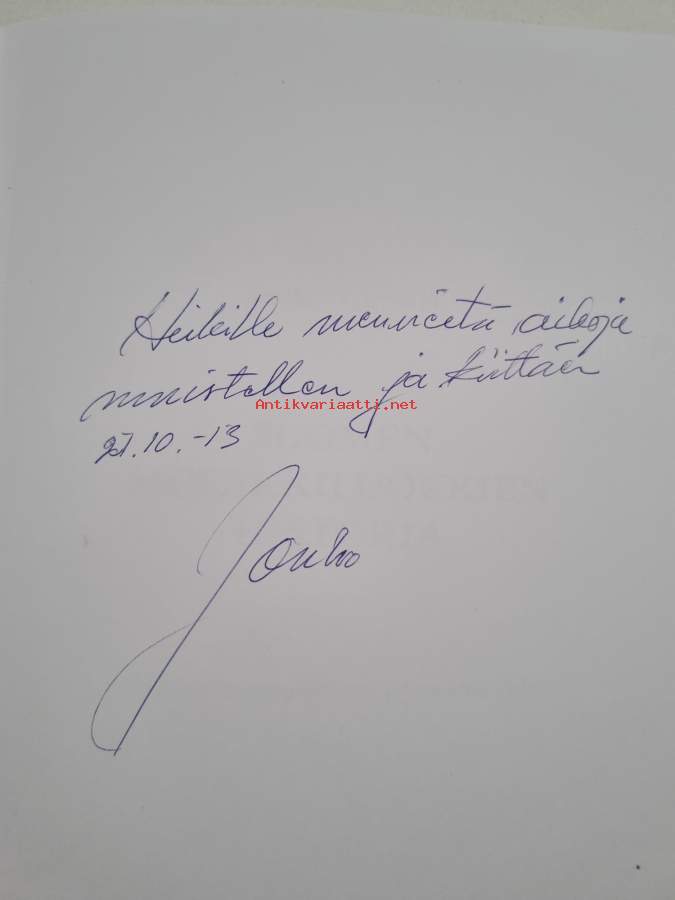 Heikille menneitä aikoja
muistellen ja kiittäen
Antikvariaatti.net
21.10.-13
Jouko